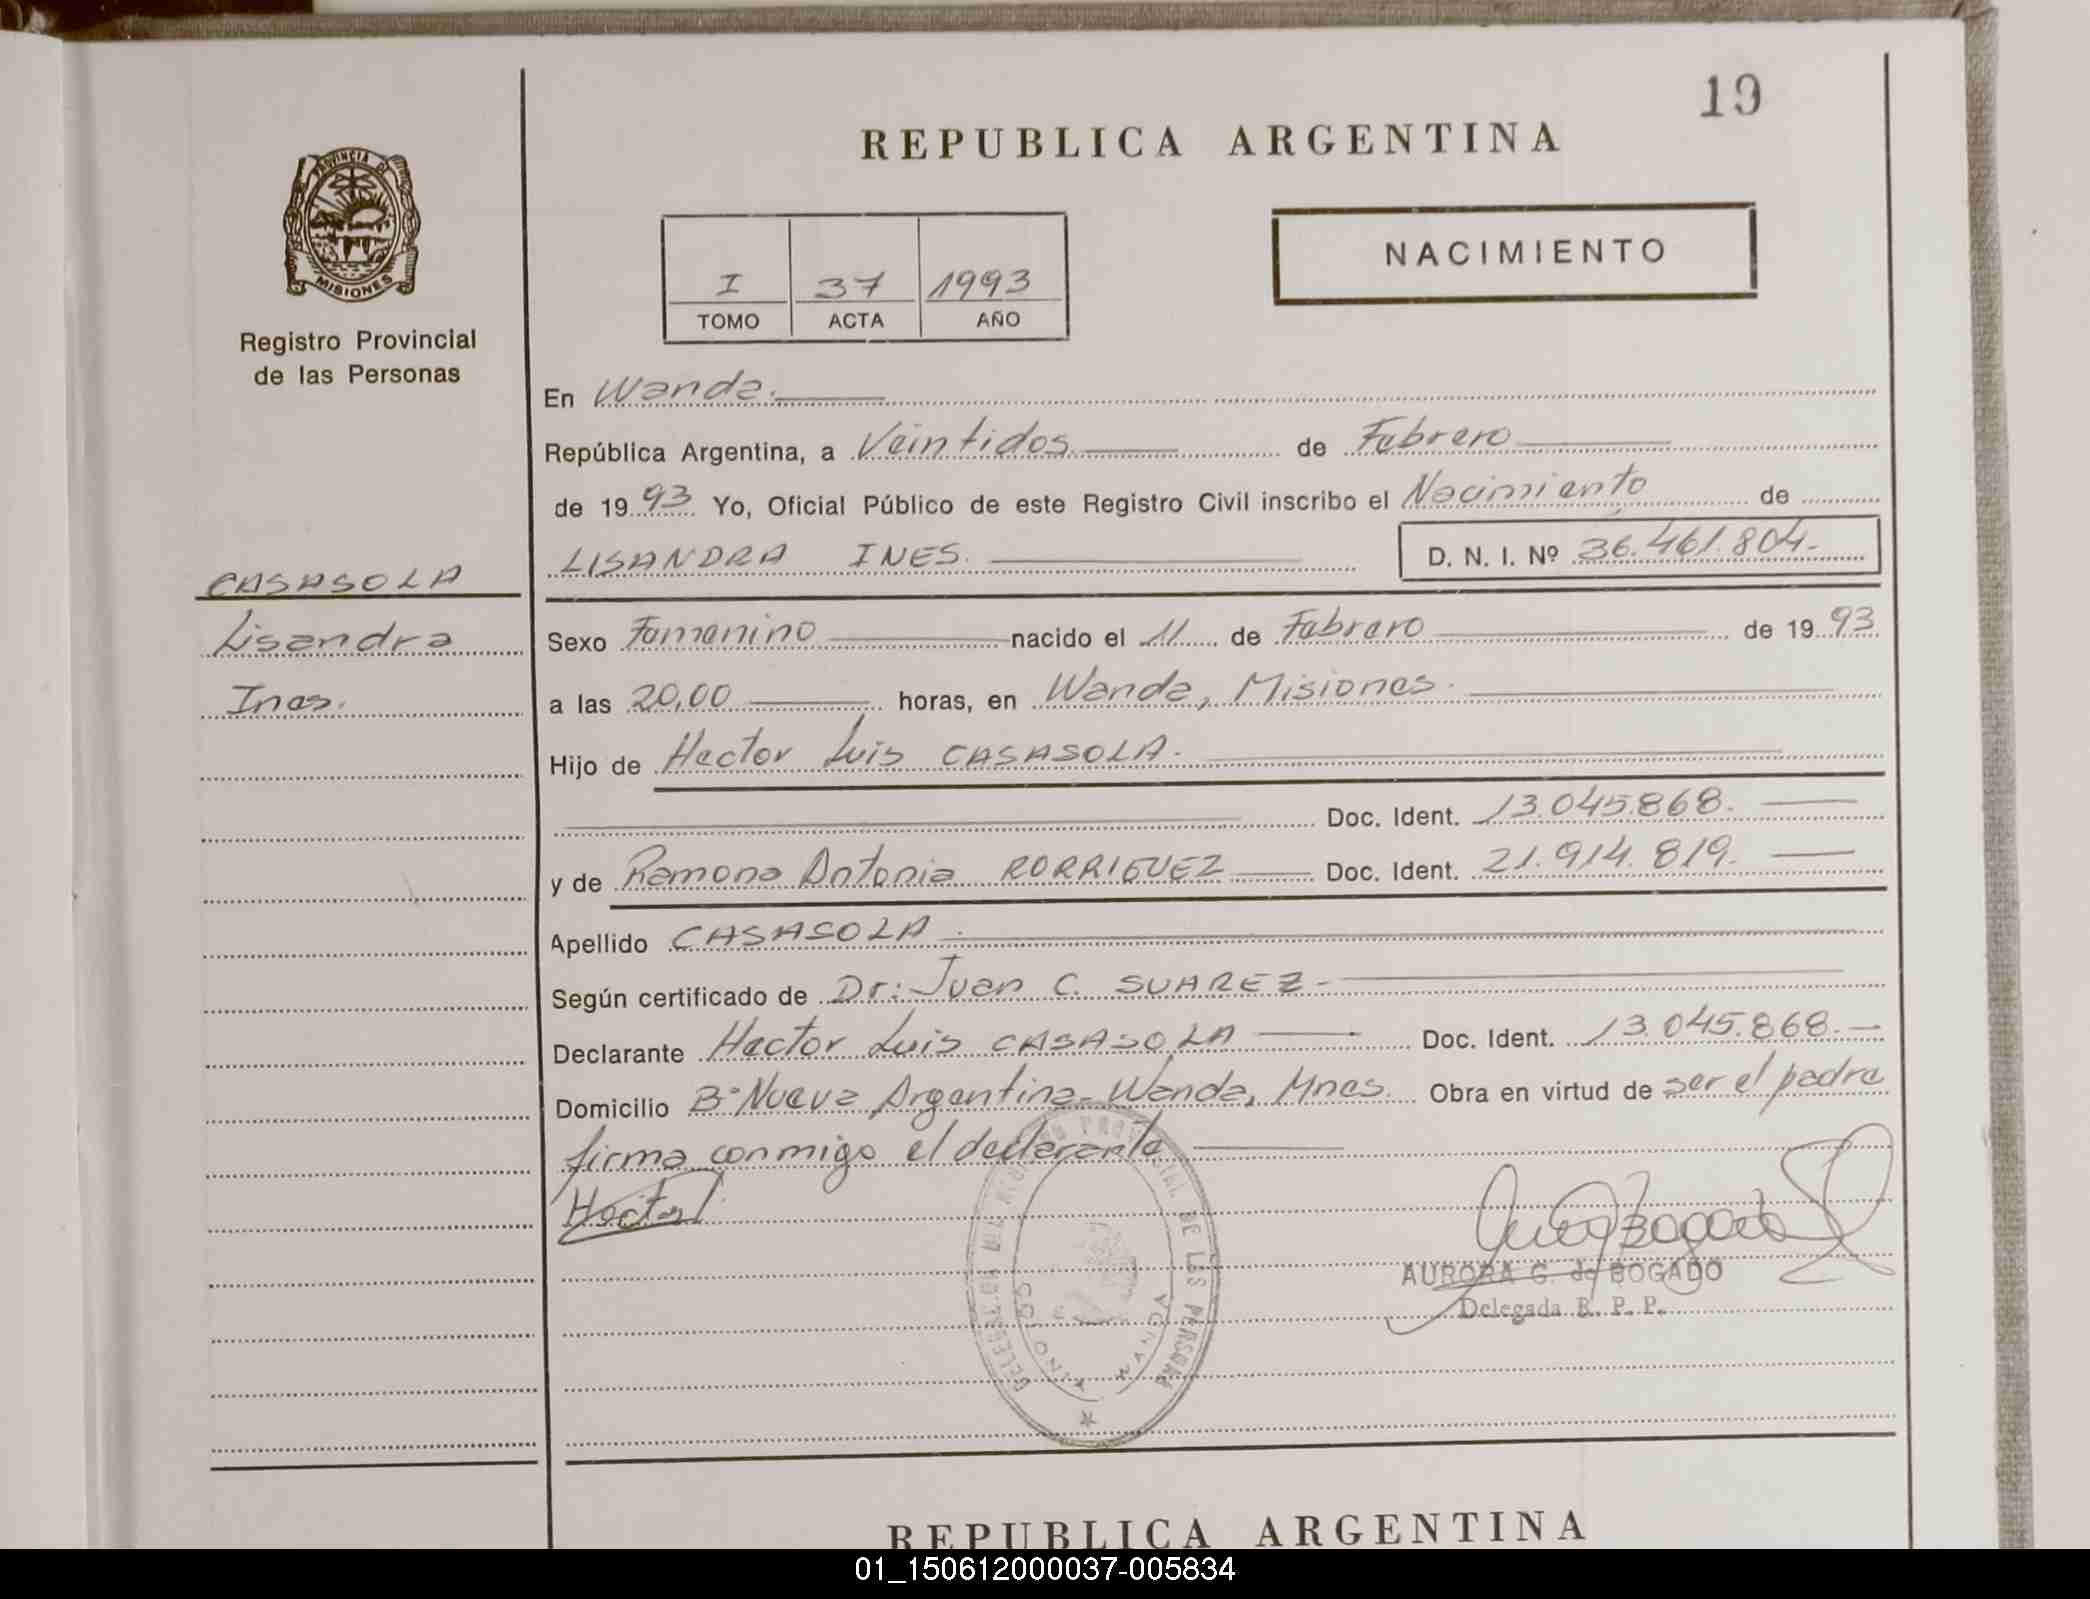 19
REPUBLICA ARGENTINA
PROVINCIA DE
MISIONES
Registro Provincial
de las Personas
I 37 1993
TOMO ACTA AÑO
NACIMIENTO
En Wanda.
República Argentina, a Veintidos de Febrero
de 1993 Yo, Oficial Público de este Registro Civil inscribo el Nacimiento de
LISANDRA INES. D. N. I. Nº 36.461.804.-
CASASOLA
Lisandra
Ines.
Sexo Femenino nacido el 11 de Febrero de 1993
a las 20,00 horas, en Wanda, Misiones.
Hijo de Hector Luis CASASOLA.
Doc. Ident. 13.045.868.
y de Ramona Antonia RORRIGUEZ Doc. Ident. 21.914.819.
Apellido CASASOLA.
Según certificado de Dr: Juan C. SUAREZ-
Declarante Hector Luis CASASOLA Doc. Ident. 13.045.868.-
Domicilio Bº Nueva Argentina- Wanda, Mnes. Obra en virtud de ser el padre
firma conmigo el declarante
Hector
AURORA G. de BOGADO
Delegada R. P. P.
REPUBLICA ARGENTINA
01_150612000037-005834